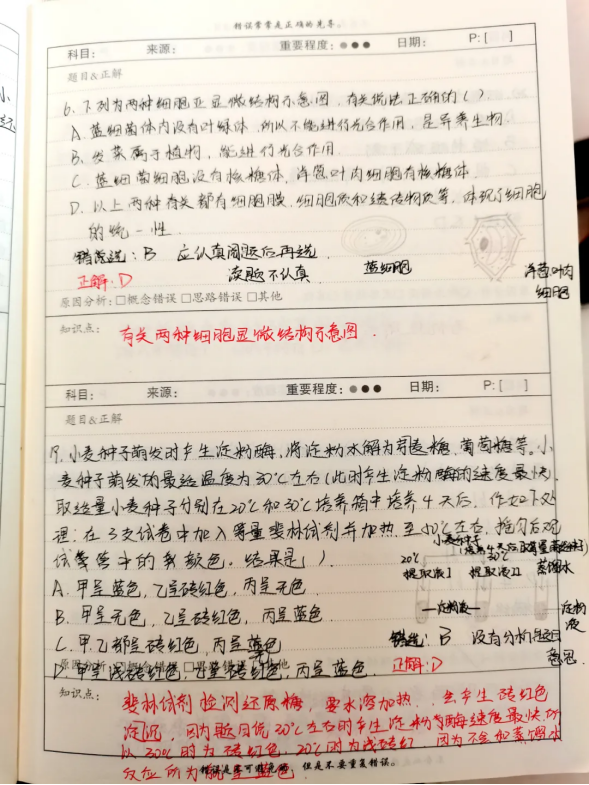 错误常常是正确的先导。
科目： 来源： 重要程度： 日期： P:[ ]
题目&正解
6. 下列为两种细胞亚显微结构示意图，有关说法正确的( ).
A. 蓝细菌体内没有叶绿体，所以不能进行光合作用，是异养生物.
B. 发菜属于植物，能进行光合作用.
C. 蓝细菌细胞没有核糖体，洋葱叶肉细胞有核糖体
D. 以上两种有关都有细胞膜、细胞质和遗传物质等，体现了细胞
的统一性.
错误选：B 应认真阅题后再选
读题不认真
蓝细胞
洋葱叶肉
细胞
正解：D
原因分析：□概念错误 □思路错误 □其他
知识点： 有关两种细胞显微结构示意图.
科目： 来源： 重要程度： 日期： P:[ ]
题目&正解
小麦种子萌发时产生淀粉酶，将淀粉水解为麦芽糖、葡萄糖等。小
麦种子萌发的最适温度为30℃左右(此时产生淀粉酶的速度最快.
取 量小麦种子分别在20℃和30℃培养箱中培养4天后，作如下处
理：在3支试管中加入等量斐林试剂并加热至 左右，摇匀后观
试管中的 颜色。结果是( ).
小麦种子
20℃ 30℃
提取液I 提取液II 蒸馏水
淀粉液 淀粉
液
A. 甲呈蓝色，乙呈砖红色，丙呈无色
B. 甲呈无色，乙呈砖红色，丙呈蓝色
C. 甲、乙都呈砖红色，丙呈蓝色
错选：B 没有分析题目
意思.
D. 甲呈浅砖红色，乙呈砖红色，丙呈蓝色.
正解：D
原因分析：□概念错误 □思路错误 □其他
知识点： 斐林试剂检测还原糖，要水浴加热. 会产生砖红色
沉淀，因为题目说30℃左右时产生淀粉酶速度最快，所
以30℃时为砖红色，20℃时为浅砖红 因为不会和蒸馏水
反应所为 呈蓝色
错误是不可避免的，但是不要重复错误。